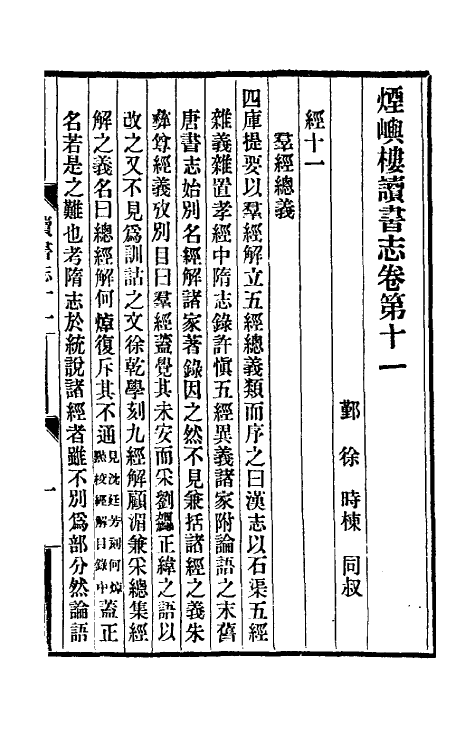 煙嶼樓讀書志卷第十一
鄞徐時棟同叔
經十一
羣經總義
四庫提要以羣經解立五經總義類而序之曰漢志以石渠五經
雜義雜置孝經中隋志錄許愼五經異義諸家附論語之末舊
唐書志始別名經解諸家著錄因之然不見兼括諸經之義朱
彝尊經義攷別目曰羣經葢覺其未安而采劉勰正緯之語以
改之又不見爲訓詁之文徐乾學刻九經解顧湄兼采總集經
解之義名曰總經解何焯復斥其不通見沈廷芳刻何焯點校經解目錄中葢正
名若是之難也考隋志於統說諸經者雖不別爲部分然論語
讀書志十一
一